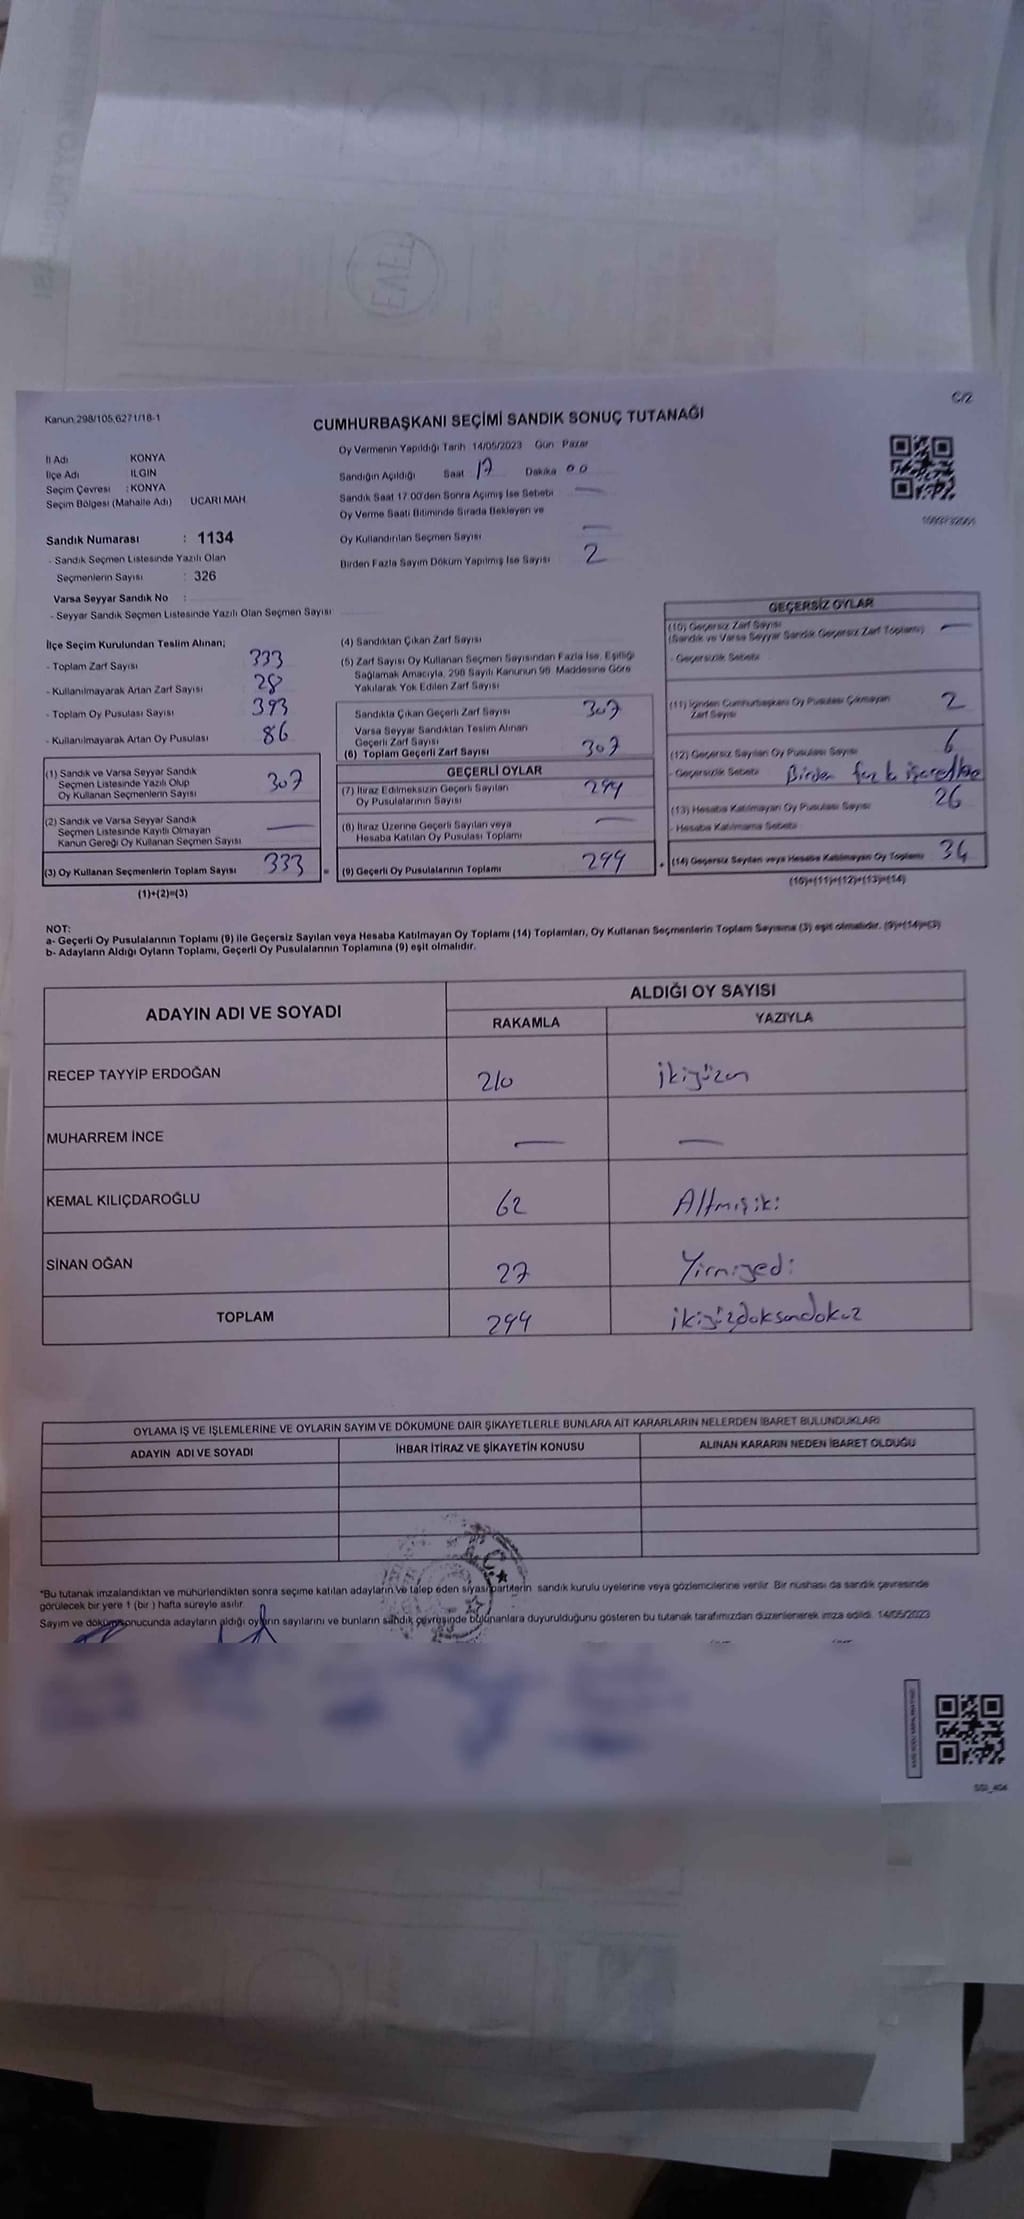 Kanun 298/105,6271/18-1
C/2
CUMHURBAŞKANI SEÇİMİ SANDIK SONUÇ TUTANAĞI
Oy Vermenin Yapıldığı Tarih 14/05/2023 Gün Pazar
İl Adı KONYA
İlçe Adı ILGIN
Seçim Çevresi : KONYA
Seçim Bölgesi (Mahalle Adı) UCARI MAH.
Sandığın Açıldığı Saat 17 Dakika 00
Sandık Saat 17.00'den Sonra Açılmış İse Sebebi —
Oy Verme Saati Bitiminde Sırada Bekleyen ve
Oy Kullandırılan Seçmen Sayısı —
Birden Fazla Sayım Döküm Yapılmış İse Sayısı 2
Sandık Numarası : 1134
- Sandık Seçmen Listesinde Yazılı Olan
Seçmenlerin Sayısı : 326
Varsa Seyyar Sandık No :
- Seyyar Sandık Seçmen Listesinde Yazılı Olan Seçmen Sayısı
İlçe Seçim Kurulundan Teslim Alınan;
- Toplam Zarf Sayısı 333
- Kullanılmayarak Artan Zarf Sayısı 28
- Toplam Oy Pusulası Sayısı 393
- Kullanılmayarak Artan Oy Pusulası 86
(1) Sandık ve Varsa Seyyar Sandık
Seçmen Listesinde Yazılı Olup
Oy Kullanan Seçmenlerin Sayısı 307
(2) Sandık ve Varsa Seyyar Sandık
Seçmen Listesinde Kayıtlı Olmayan
Kanun Gereği Oy Kullanan Seçmen Sayısı —
(3) Oy Kullanan Seçmenlerin Toplam Sayısı 333 =
(1)+(2)=(3)
(4) Sandıktan Çıkan Zarf Sayısı
(5) Zarf Sayısı Oy Kullanan Seçmen Sayısından Fazla İse, Eşitliği
Sağlamak Amacıyla, 298 Sayılı Kanunun 98. Maddesine Göre
Yakılarak Yok Edilen Zarf Sayısı
Sandıkta Çıkan Geçerli Zarf Sayısı 307
Varsa Seyyar Sandıktan Teslim Alınan
Geçerli Zarf Sayısı
(6) Toplam Geçerli Zarf Sayısı 307
GEÇERLİ OYLAR
(7) İtiraz Edilmeksizin Geçerli Sayılan
Oy Pusulalarının Sayısı 299
(8) İtiraz Üzerine Geçerli Sayılan veya
Hesaba Katılan Oy Pusulası Toplamı —
(9) Geçerli Oy Pusulalarının Toplamı 299 +
GEÇERSİZ OYLAR
(10) Geçersiz Zarf Sayısı
(Sandık ve Varsa Seyyar Sandık Geçersiz Zarf Toplamı) —
- Geçersizlik Sebebi
(11) İçinden Cumhurbaşkanı Oy Pusulası Çıkmayan
Zarf Sayısı 2
(12) Geçersiz Sayılan Oy Pusulası Sayısı 6
- Geçersizlik Sebebi Birden
(13) Hesaba Katılmayan Oy Pusulası Sayısı 26
- Hesaba Katılmama Sebebi
(14) Geçersiz Sayılan veya Hesaba Katılmayan Oy Toplamı 34
(10)+(11)+(12)+(13)=(14)
NOT:
a- Geçerli Oy Pusulalarının Toplamı (9) ile Geçersiz Sayılan veya Hesaba Katılmayan Oy Toplamı (14) Toplamları, Oy Kullanan Seçmenlerin Toplam Sayısına (3) eşit olmalıdır. (9)+(14)=(3)
b- Adayların Aldığı Oyların Toplamı, Geçerli Oy Pusulalarının Toplamına (9) eşit olmalıdır.
ADAYIN ADI VE SOYADI
ALDIĞI OY SAYISI
RAKAMLA YAZIYLA
RECEP TAYYİP ERDOĞAN 210 ikiyüzon
MUHARREM İNCE — —
KEMAL KILIÇDAROĞLU 62 Altmışiki
SİNAN OĞAN 27 Yirmiyedi
TOPLAM 299 ikiyüzdoksandokuz
OYLAMA İŞ VE İŞLEMLERİNE VE OYLARIN SAYIM VE DÖKÜMÜNE DAİR ŞİKAYETLERLE BUNLARA AİT KARARLARIN NELERDEN İBARET BULUNDUKLARI
ADAYIN ADI VE SOYADI İHBAR İTİRAZ VE ŞİKAYETİN KONUSU ALINAN KARARIN NEDEN İBARET OLDUĞU
*Bu tutanak imzalandıktan ve mühürlendikten sonra seçime katılan adayların ve talep eden siyasi partilerin sandık kurulu üyelerine veya gözlemcilerine verilir. Bir nüshası da sandık çevresinde
görülecek bir yere 1 (bir) hafta süreyle asılır.
Sayım ve döküm sonucunda adayların aldığı oyların sayılarını ve bunların sandık çevresinde bulunanlara duyurulduğunu gösteren bu tutanak tarafımızdan düzenlenerek imza edildi. 14/05/2023